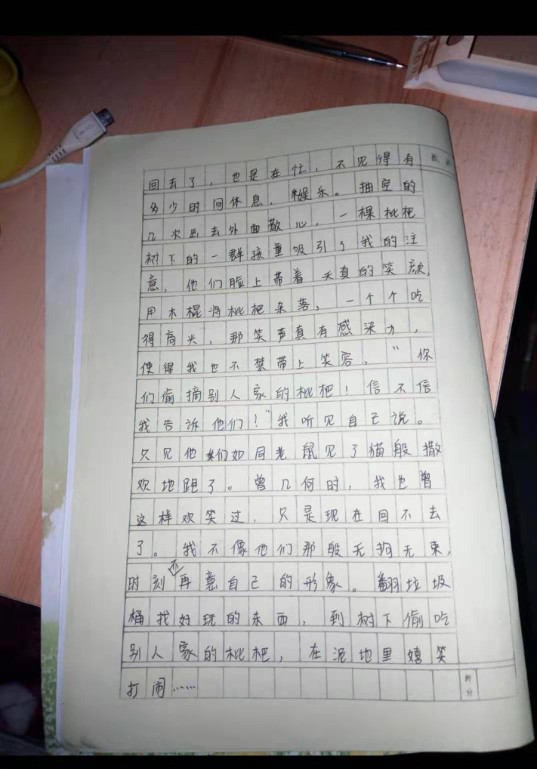 回去了，也是在忙，不见得有
多少时间休息，娱乐。抽空的
几次出去外面散心，一棵枇杷
树下的一群孩童吸引了我的注
意，他们脸上带着天真的笑颜，
用木棍将枇杷杂落，一个个吃
得高兴，那笑声真有感染力，
使得我也不禁带上笑容，“你
们偷摘别人家的枇杷！信不信
我告诉他们！”我听见自己说。
只见他们如同老鼠见了猫般撒
欢地跑了。曾几何时，我也曾
这样欢笑过，只是现在回不去
了。我不像他们那般无拘无束，
时刻不再意自己的形象。翻垃圾
桶找好玩的东西，到树下偷吃
别人家的枇杷，在泥地里嬉笑
打闹……